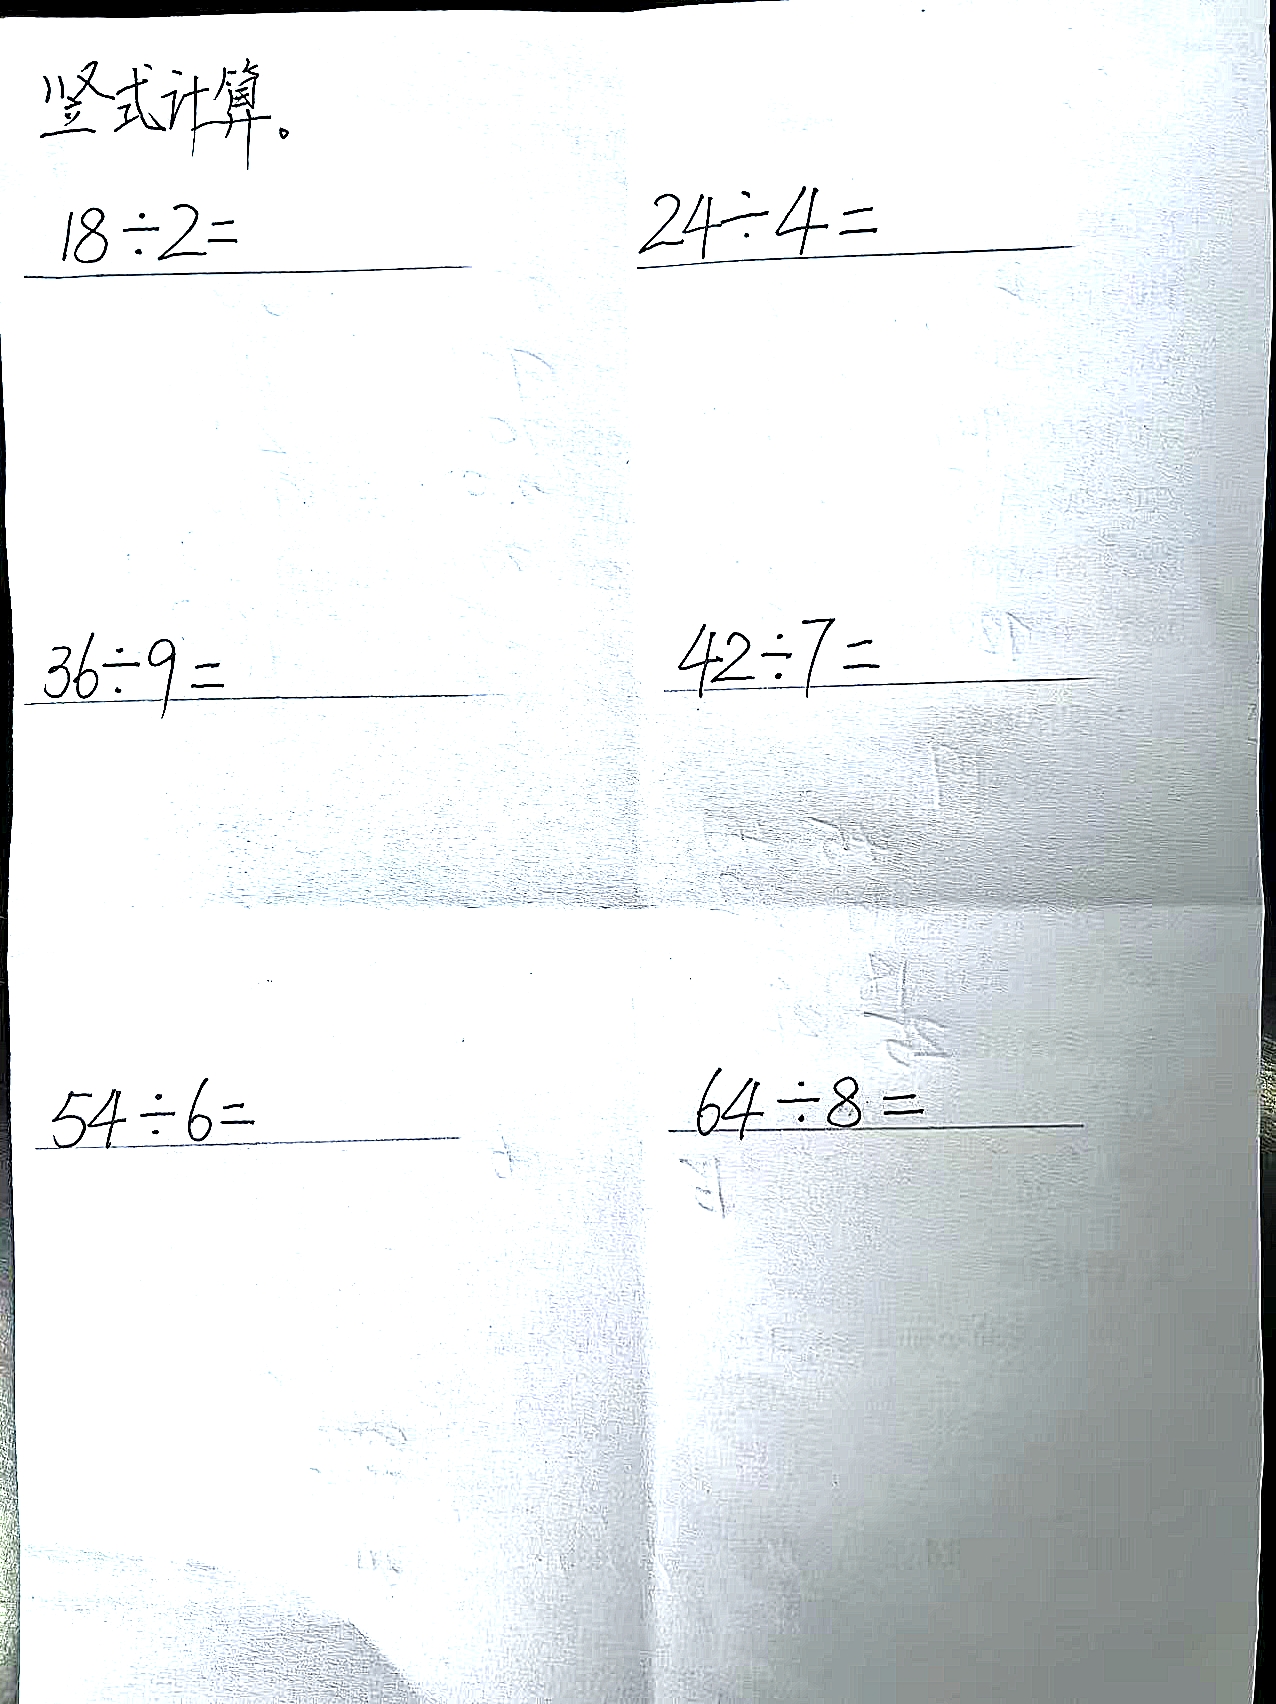 竖式计算。
18÷2=
24÷4=
36÷9=
42÷7=
54÷6=
64÷8=